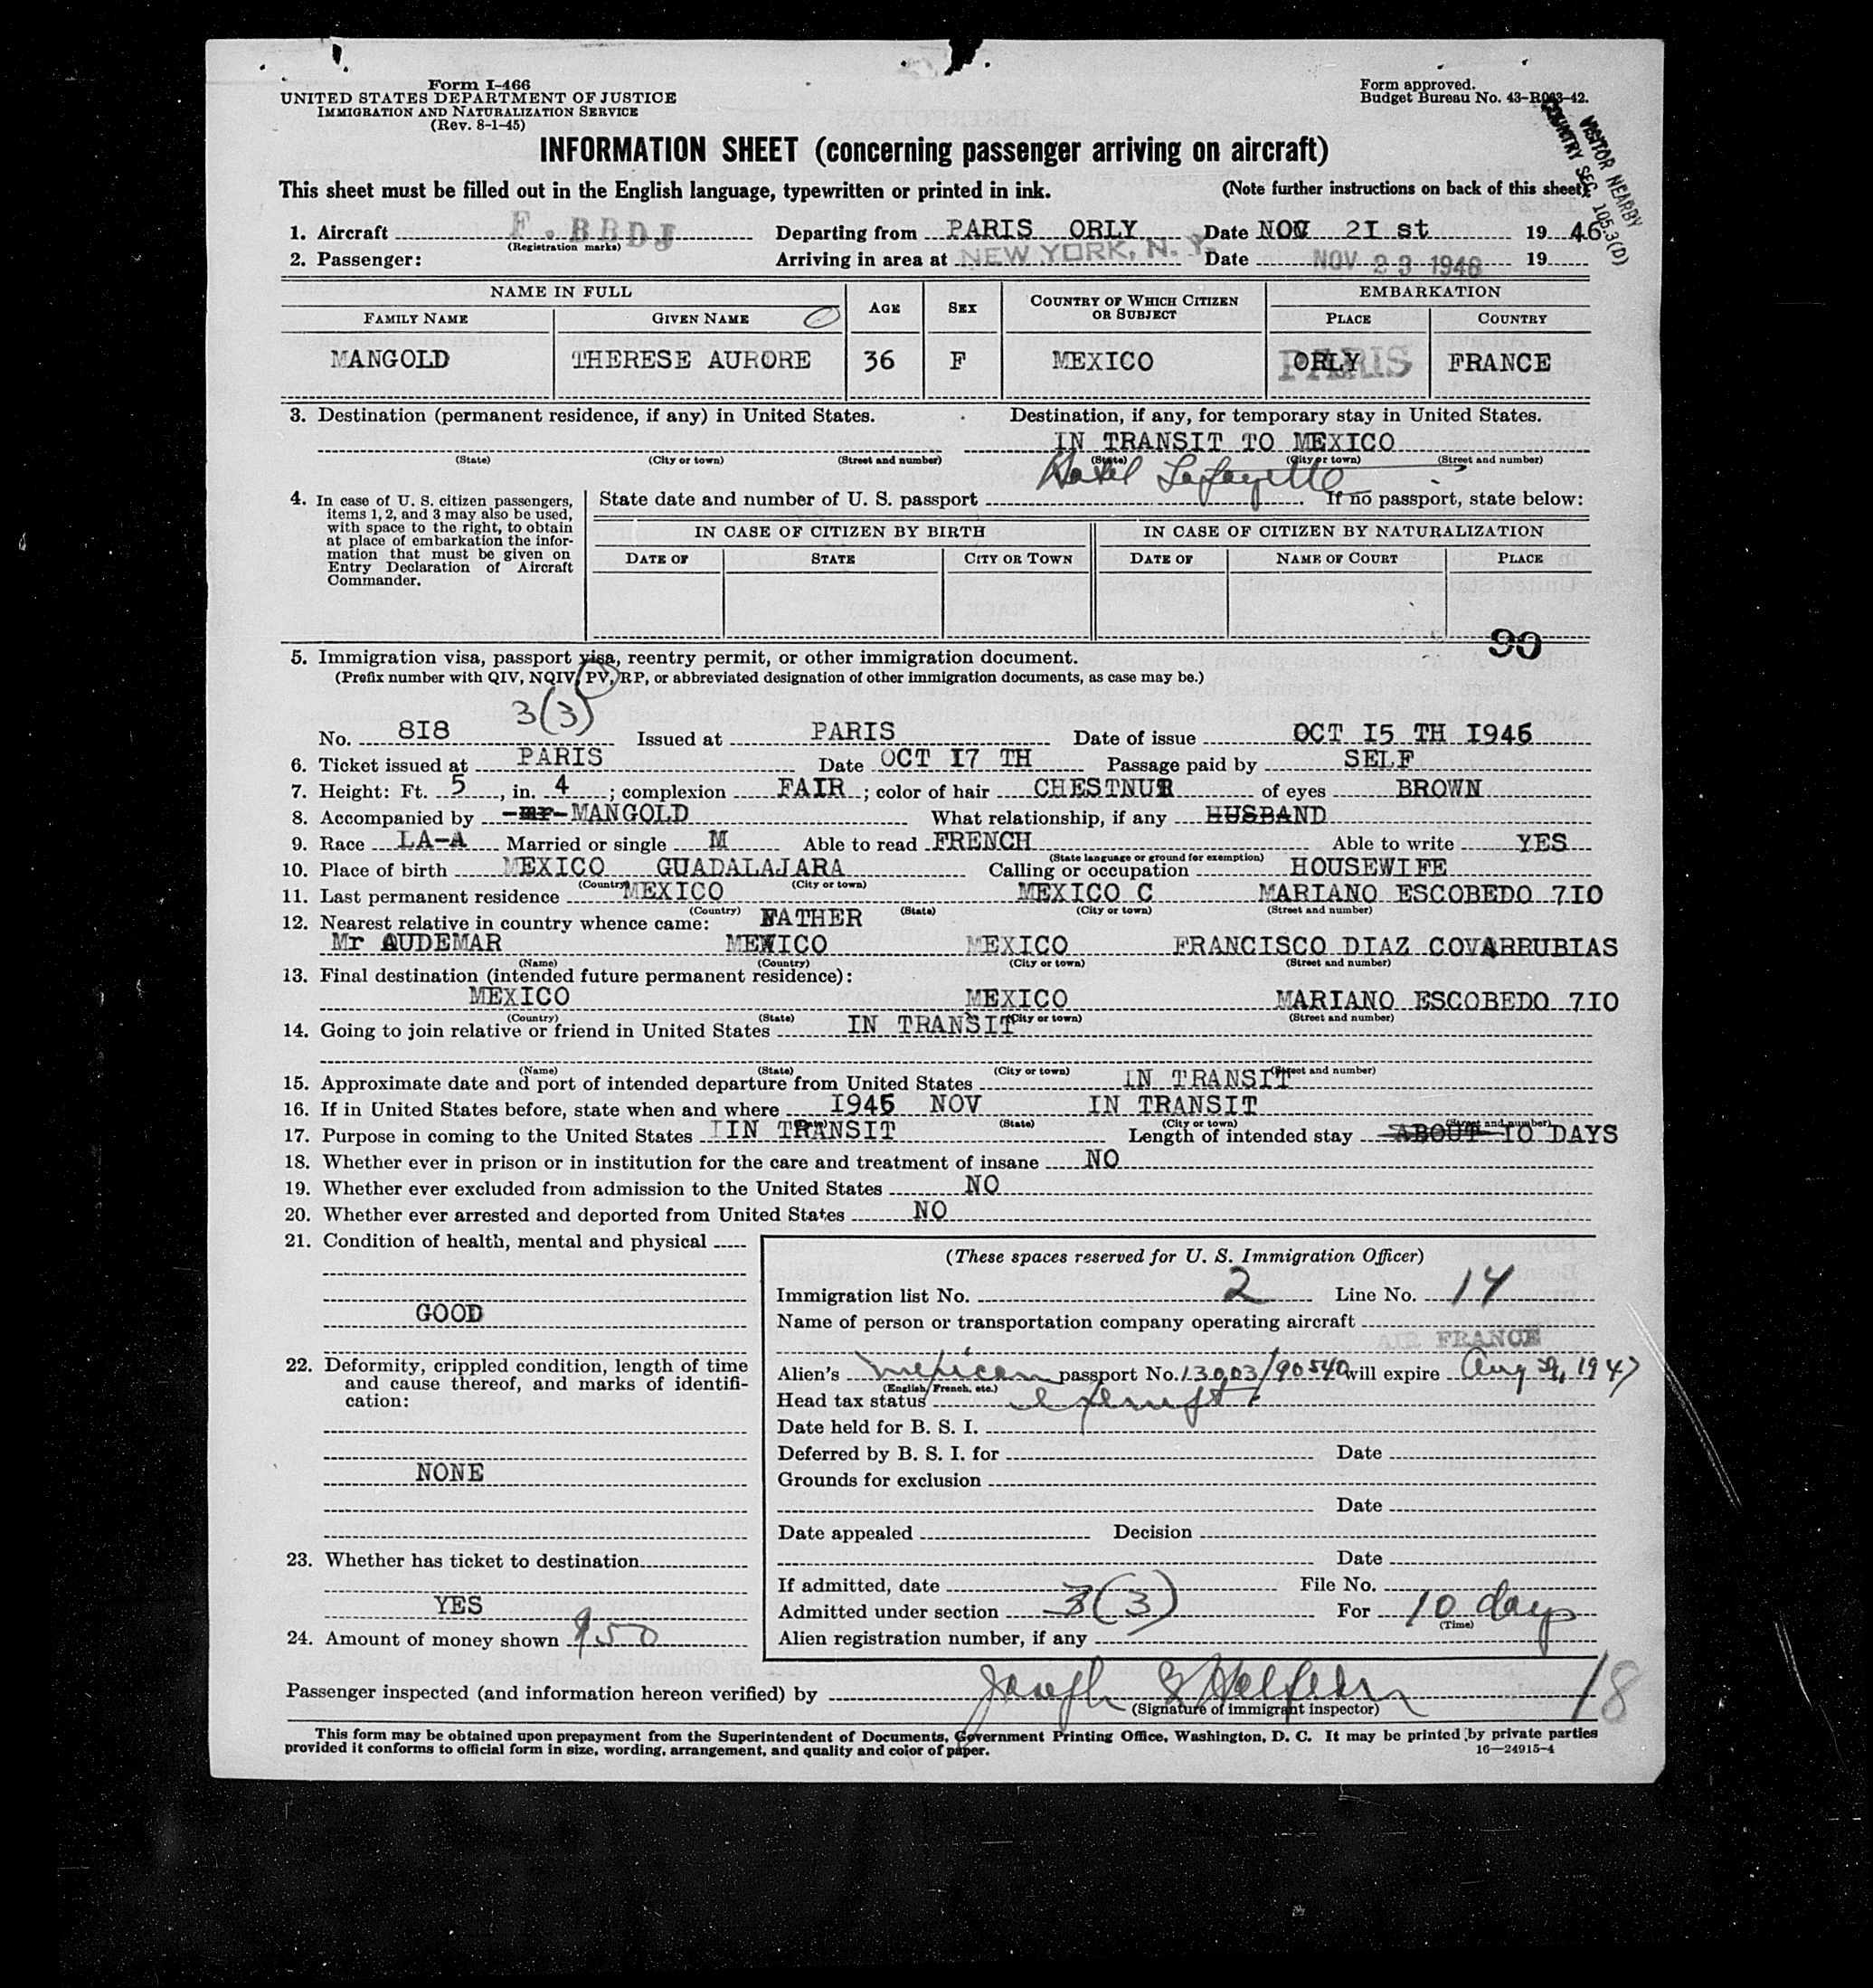 Form I-466
UNITED STATES DEPARTMENT OF JUSTICE
IMMIGRATION AND NATURALIZATION SERVICE
(Rev. 8-1-45)
Form approved.
Budget Bureau No. 43-R063-42.
VISITOR NEARBY
COUNTRY SEC. 105.3(D)
INFORMATION SHEET (concerning passenger arriving on aircraft)
This sheet must be filled out in the English language, typewritten or printed in ink. (Note further instructions on back of this sheet)
1. Aircraft F. BBDJ Departing from PARIS ORLY Date NOV 2I st 19 46
(Registration marks)
2. Passenger: Arriving in area at NEW YORK, N. Y. Date NOV 23 1946 19
NAME IN FULL AGE SEX COUNTRY OF WHICH CITIZEN OR SUBJECT EMBARKATION
FAMILY NAME GIVEN NAME PLACE COUNTRY
MANGOLD THERESE AURORE 36 F MEXICO ORLY PARIS FRANCE
3. Destination (permanent residence, if any) in United States. Destination, if any, for temporary stay in United States.
IN TRANSIT TO MEXICO
(State) (City or town) (Street and number) (State) (City or town) (Street and number)
Hotel Lafayette
4. In case of U. S. citizen passengers, items 1, 2, and 3 may also be used, with space to the right, to obtain at place of embarkation the information that must be given on Entry Declaration of Aircraft Commander.
State date and number of U. S. passport If no passport, state below:
IN CASE OF CITIZEN BY BIRTH IN CASE OF CITIZEN BY NATURALIZATION
DATE OF STATE CITY OR TOWN DATE OF NAME OF COURT PLACE
90
5. Immigration visa, passport visa, reentry permit, or other immigration document.
(Prefix number with QIV, NQIV, PV, RP, or abbreviated designation of other immigration documents, as case may be.)
3(3)
No. 8I8 Issued at PARIS Date of issue OCT I5 TH I946
6. Ticket issued at PARIS Date OCT I7 TH Passage paid by SELF
7. Height: Ft. 5, in. 4; complexion FAIR; color of hair CHESTNUT of eyes BROWN
8. Accompanied by mr MANGOLD What relationship, if any HUSBAND
9. Race LA-A Married or single M Able to read FRENCH Able to write YES
(State language or ground for exemption)
10. Place of birth MEXICO GUADALAJARA Calling or occupation HOUSEWIFE
(Country) (City or town)
11. Last permanent residence MEXICO MEXICO C MARIANO ESCOBEDO 7I0
(Country) (State) (City or town) (Street and number)
12. Nearest relative in country whence came: FATHER
Mr AUDEMAR MEXICO MEXICO FRANCISCO DIAZ COVARRUBIAS
(Name) (Country) (City or town) (Street and number)
13. Final destination (intended future permanent residence):
MEXICO MEXICO MARIANO ESCOBEDO 7I0
(Country) (State) (City or town) (Street and number)
14. Going to join relative or friend in United States IN TRANSIT
(Name) (State) (City or town) (Street and number)
15. Approximate date and port of intended departure from United States IN TRANSIT
16. If in United States before, state when and where I946 NOV IN TRANSIT
(State) (City or town) (Street and number)
17. Purpose in coming to the United States IIN TRANSIT Length of intended stay ABOUT IO DAYS
18. Whether ever in prison or in institution for the care and treatment of insane NO
19. Whether ever excluded from admission to the United States NO
20. Whether ever arrested and deported from United States NO
21. Condition of health, mental and physical
GOOD
22. Deformity, crippled condition, length of time and cause thereof, and marks of identification:
NONE
23. Whether has ticket to destination
YES
24. Amount of money shown 950
(These spaces reserved for U. S. Immigration Officer)
Immigration list No. 2 Line No. 14
Name of person or transportation company operating aircraft
AIR FRANCE
Alien's mexican passport No. 13003/90540 will expire Aug 29, 1947
(English, French, etc.)
Head tax status exempt
Date held for B. S. I.
Deferred by B. S. I. for Date
Grounds for exclusion
Date
Date appealed Decision
Date
If admitted, date File No.
Admitted under section 3(3) For 10 days
(Time)
Alien registration number, if any
Passenger inspected (and information hereon verified) by Joseph 18
(Signature of immigrant inspector)
This form may be obtained upon prepayment from the Superintendent of Documents, Government Printing Office, Washington, D. C. It may be printed by private parties
provided it conforms to official form in size, wording, arrangement, and quality and color of paper. 16—24915-4